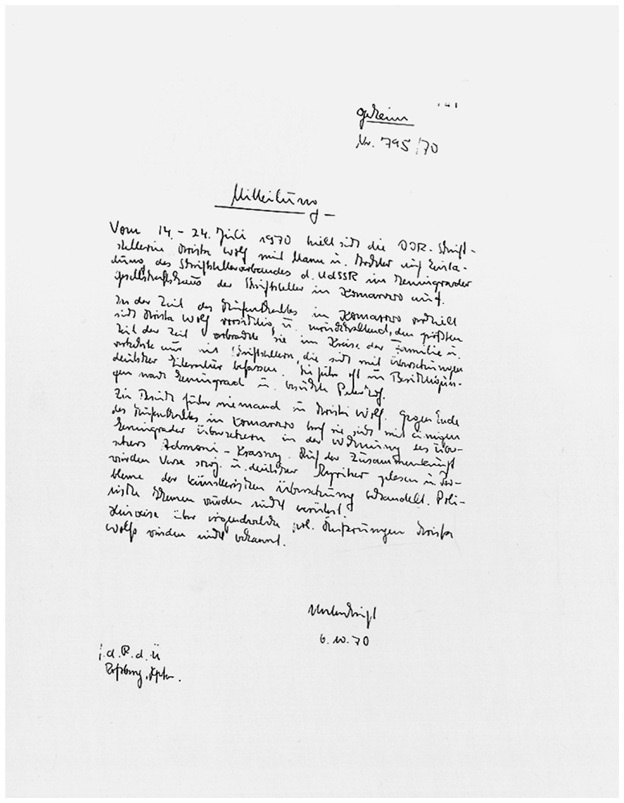 geheim
Nr. 795/70
Mitteilung
Vom 14. - 24. Juli 1970 hielt sich die DDR-Schrift-
stellerin Christa Wolf mit Mann u. Tochter auf Einla-
dung des Schriftstellerverbandes d. UdSSR im Leningrader
der Schriftsteller in Komarowo auf.
In der Zeit des Aufenthaltes in Komarowo verhielt
sich Christa Wolf vorsichtig u. zurückhaltend, den größten
Teil der Zeit verbrachte sie im Kreise der Familie u.
verkehrte nur mit Schriftstellern, die sich mit Übersetzungen
deutscher Literatur befassen. Sie fuhr oft zu Besichtigun-
gen nach Leningrad u. besuchte Peterhof.
Zu Besuch fuhr niemand zu Christa Wolf. Gegen Ende
des Aufenthaltes in Komarowo traf sie sich mit einigen
Leningrader Übersetzern in der Wohnung des Über-
setzers Admoni-Krasny. Auf der Zusammenkunft
wurden Verse sowj. u. deutscher Lyriker gelesen u. Pro-
bleme der künstlerischen Übersetzung behandelt. Poli-
tische Themen wurden nicht berührt.
Hinweise über irgendwelche pol. Äußerungen Christa
Wolfs wurden nicht bekannt.
Unterschrift
6.10.70
F.d.R.d.Ü